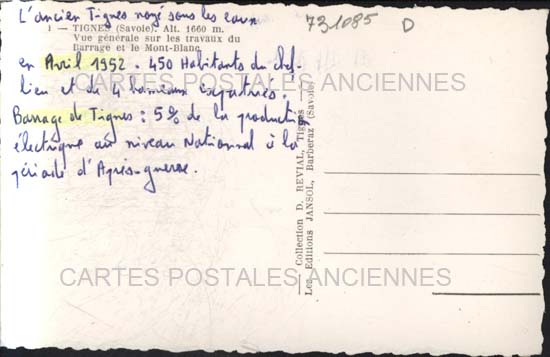 L'ancien Tignes noyé sous les eaux
731085 D
1 — TIGNES (Savoie). Alt. 1660 m.
Vue générale sur les travaux du
Barrage et le Mont-Blanc
en Avril 1952. 450 Habitants du chef-
lieu et de 4 hameaux expatriés.
CARTES POSTALES ANCIENNES
Barrage de Tignes : 5% de la production
électrique au niveau Nationnal à la
période d'Après-guerre.
— Collection D. REVIAL, Tignes —
Les Editions JANSOL, Barberaz (Savoie)
CARTES POSTALES ANCIENNES